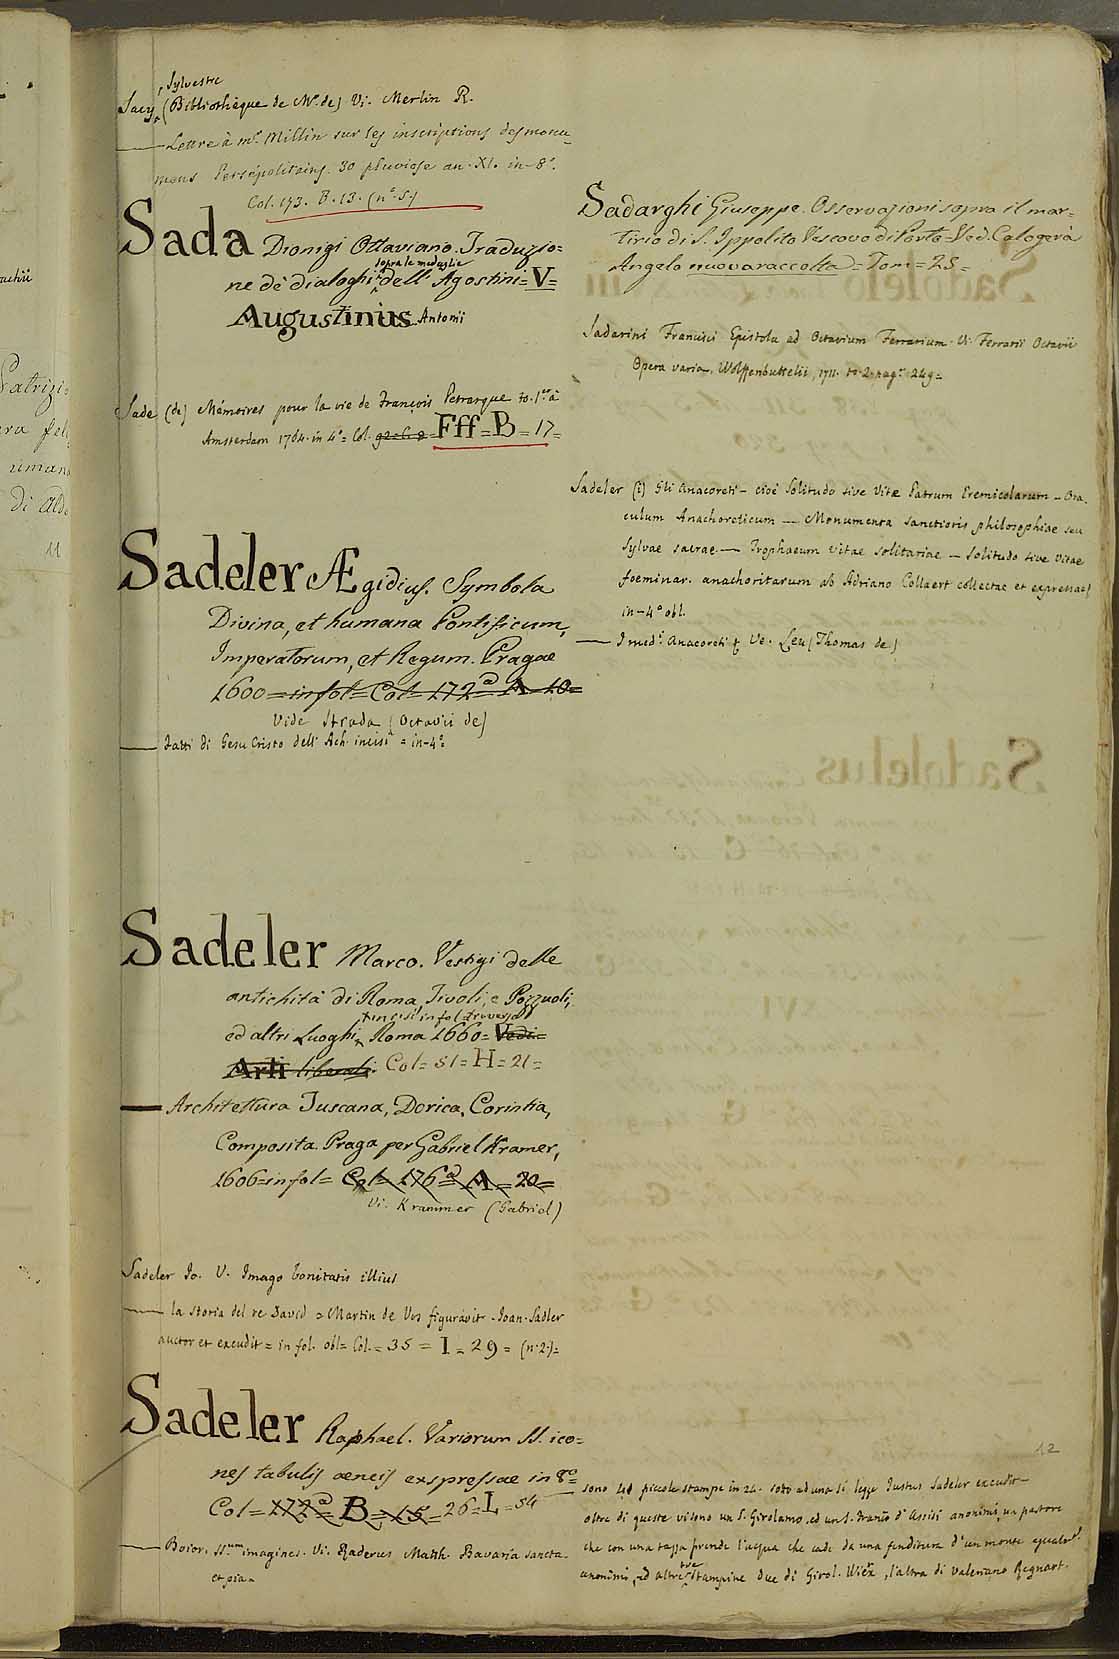 Sylvestre
Sacy, (Bibliothèque de Mr. de) Vi. Merlin R.
Lettre à mr. Millin sur les inscriptions des monu_
mens Persépolitains. 30 pluviose an. XI. in-8°.
Col. 173. B. 13. (n° 5.)
Sada Dionigi Ottaviano. Traduzio=
sopra le medaglie
ne dè dialoghi dell' Agostini = V =
Augustinus Antonii
Sade (de) Mémoires pour la vie de François Petrarque to. 1.er à
Amsterdam 1764. in 4° = Col. Fff = B = 17 =
Sadeler Ægidius. Symbola
Divina, et humana Pontificum,
Imperatorum, et Regum. Pragae
1600 = in fol = Col = 172 a A = 10 =
Vide Strada (Octavii de)
Fatti di Gesu Cristo dell' Ach. incisi = in-4° =
Sadeler Marco. Vestigi delle
antichità di Roma, Tivoli, e Pozzuoli,
incisi in fol. traverso
ed altri Luoghi, Roma 1660 = Vedi =
Arti liberali. Col = 51 = H = 21 =
Architettura Tuscana, Dorica, Corintia,
Composita. Praga per Gabriel Kramer,
1606 = in fol = Col = 176 a A = 20 =
Vi. Krammer (Gabriel)
Sadeler Io. V. Imago bonitatis illius
la storia del re David = Martin de Vos figuravit - Ioan. Sadler
auctor et excudit = in fol. obl = Col. = 35 = I = 29 = (n° 2.) =
Sadeler Raphael. Variorum SS. ico=
nes tabulis aeneis expressae in 8°
Col = 172 a B = 15 = 26 = L = 54
Boior. SS.um imagines. Vi. Raderus Matth. Bavaria sancta
et pia =
Sadarghi Giuseppe. Osservazioni sopra il mar=
tirio di S. Ippolito Vescovo di Porto = Ved. Calogerà
Angelo nuova raccolta = Tom = 25 =
Sadarini Francisci Epistola ad Octavium Ferrarium. Vi. Ferrarii Octavii
Opera varia. Wolffenbuttelii, 1711. to. 2. pag. 249 =
Sadeler (i) Gli Anacoreti - cioè Solitudo sive Vitæ Patrum Eremicolarum - Ora_
culum Anachoreticum — Monumenta sanctioris philosophiae seu
Sylvae sacrae — Trophaeum vitae solitariae — Solitudo sive vitae
foeminar. anachoritarum ab Adriano Collaert collectae et expressae)
in-4° obl.
I med.i Anacoreti Ve. Leu (Thomas de)
12
sono piccole stampe in 24. sotto ad una si legge Justus Sadeler excudit -
oltre di queste vi sono un S. Girolamo, ed un S. Fran.co d'Assisi anonimi, un pastore
che con una tazza prende l'acqua che cade da una fenditura d'un monte
tre
anonimi, ed altre stampine due di Girol. Wierx, l'altra di Valeriano Regnart.